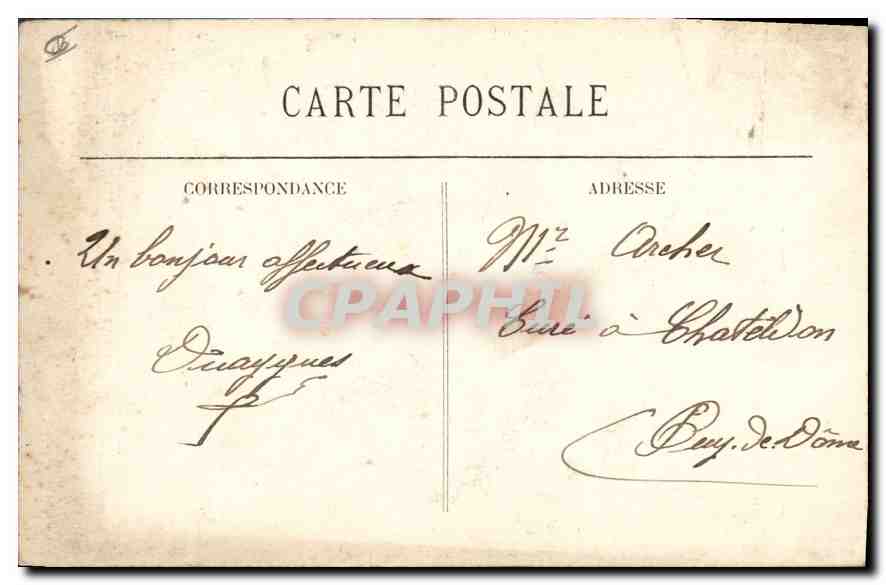 CARTE POSTALE
CORRESPONDANCE
Un bonjour affectueux
ADRESSE
Mr Archer
Curé à Chateldon
Puy-de-Dôme
CPAPHIL